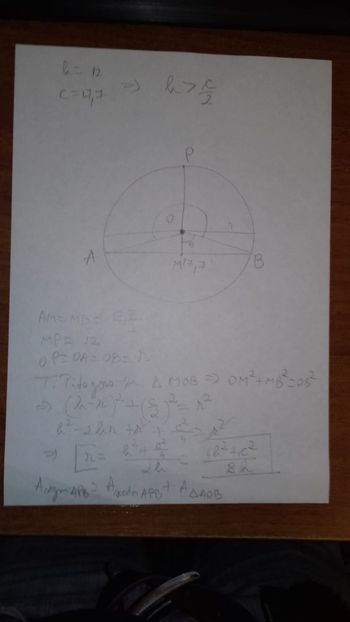 h = 12
c = 17,7 ⇒ h > c/2
P
O
r
A
M
17,7
B
AM = MB =
MP = 12
OP = OA = OB = r
T. Pitagora în Δ MOB ⇒ OM² + MB² = OB²
⇒ (h-r)² + (c/2)² = r²
h² - 2hr + r² + c²/4 = r²
⇒ r = (h² + c²/4)/2h = (4h² + c²)/8h
APB = APB + A ΔAOB